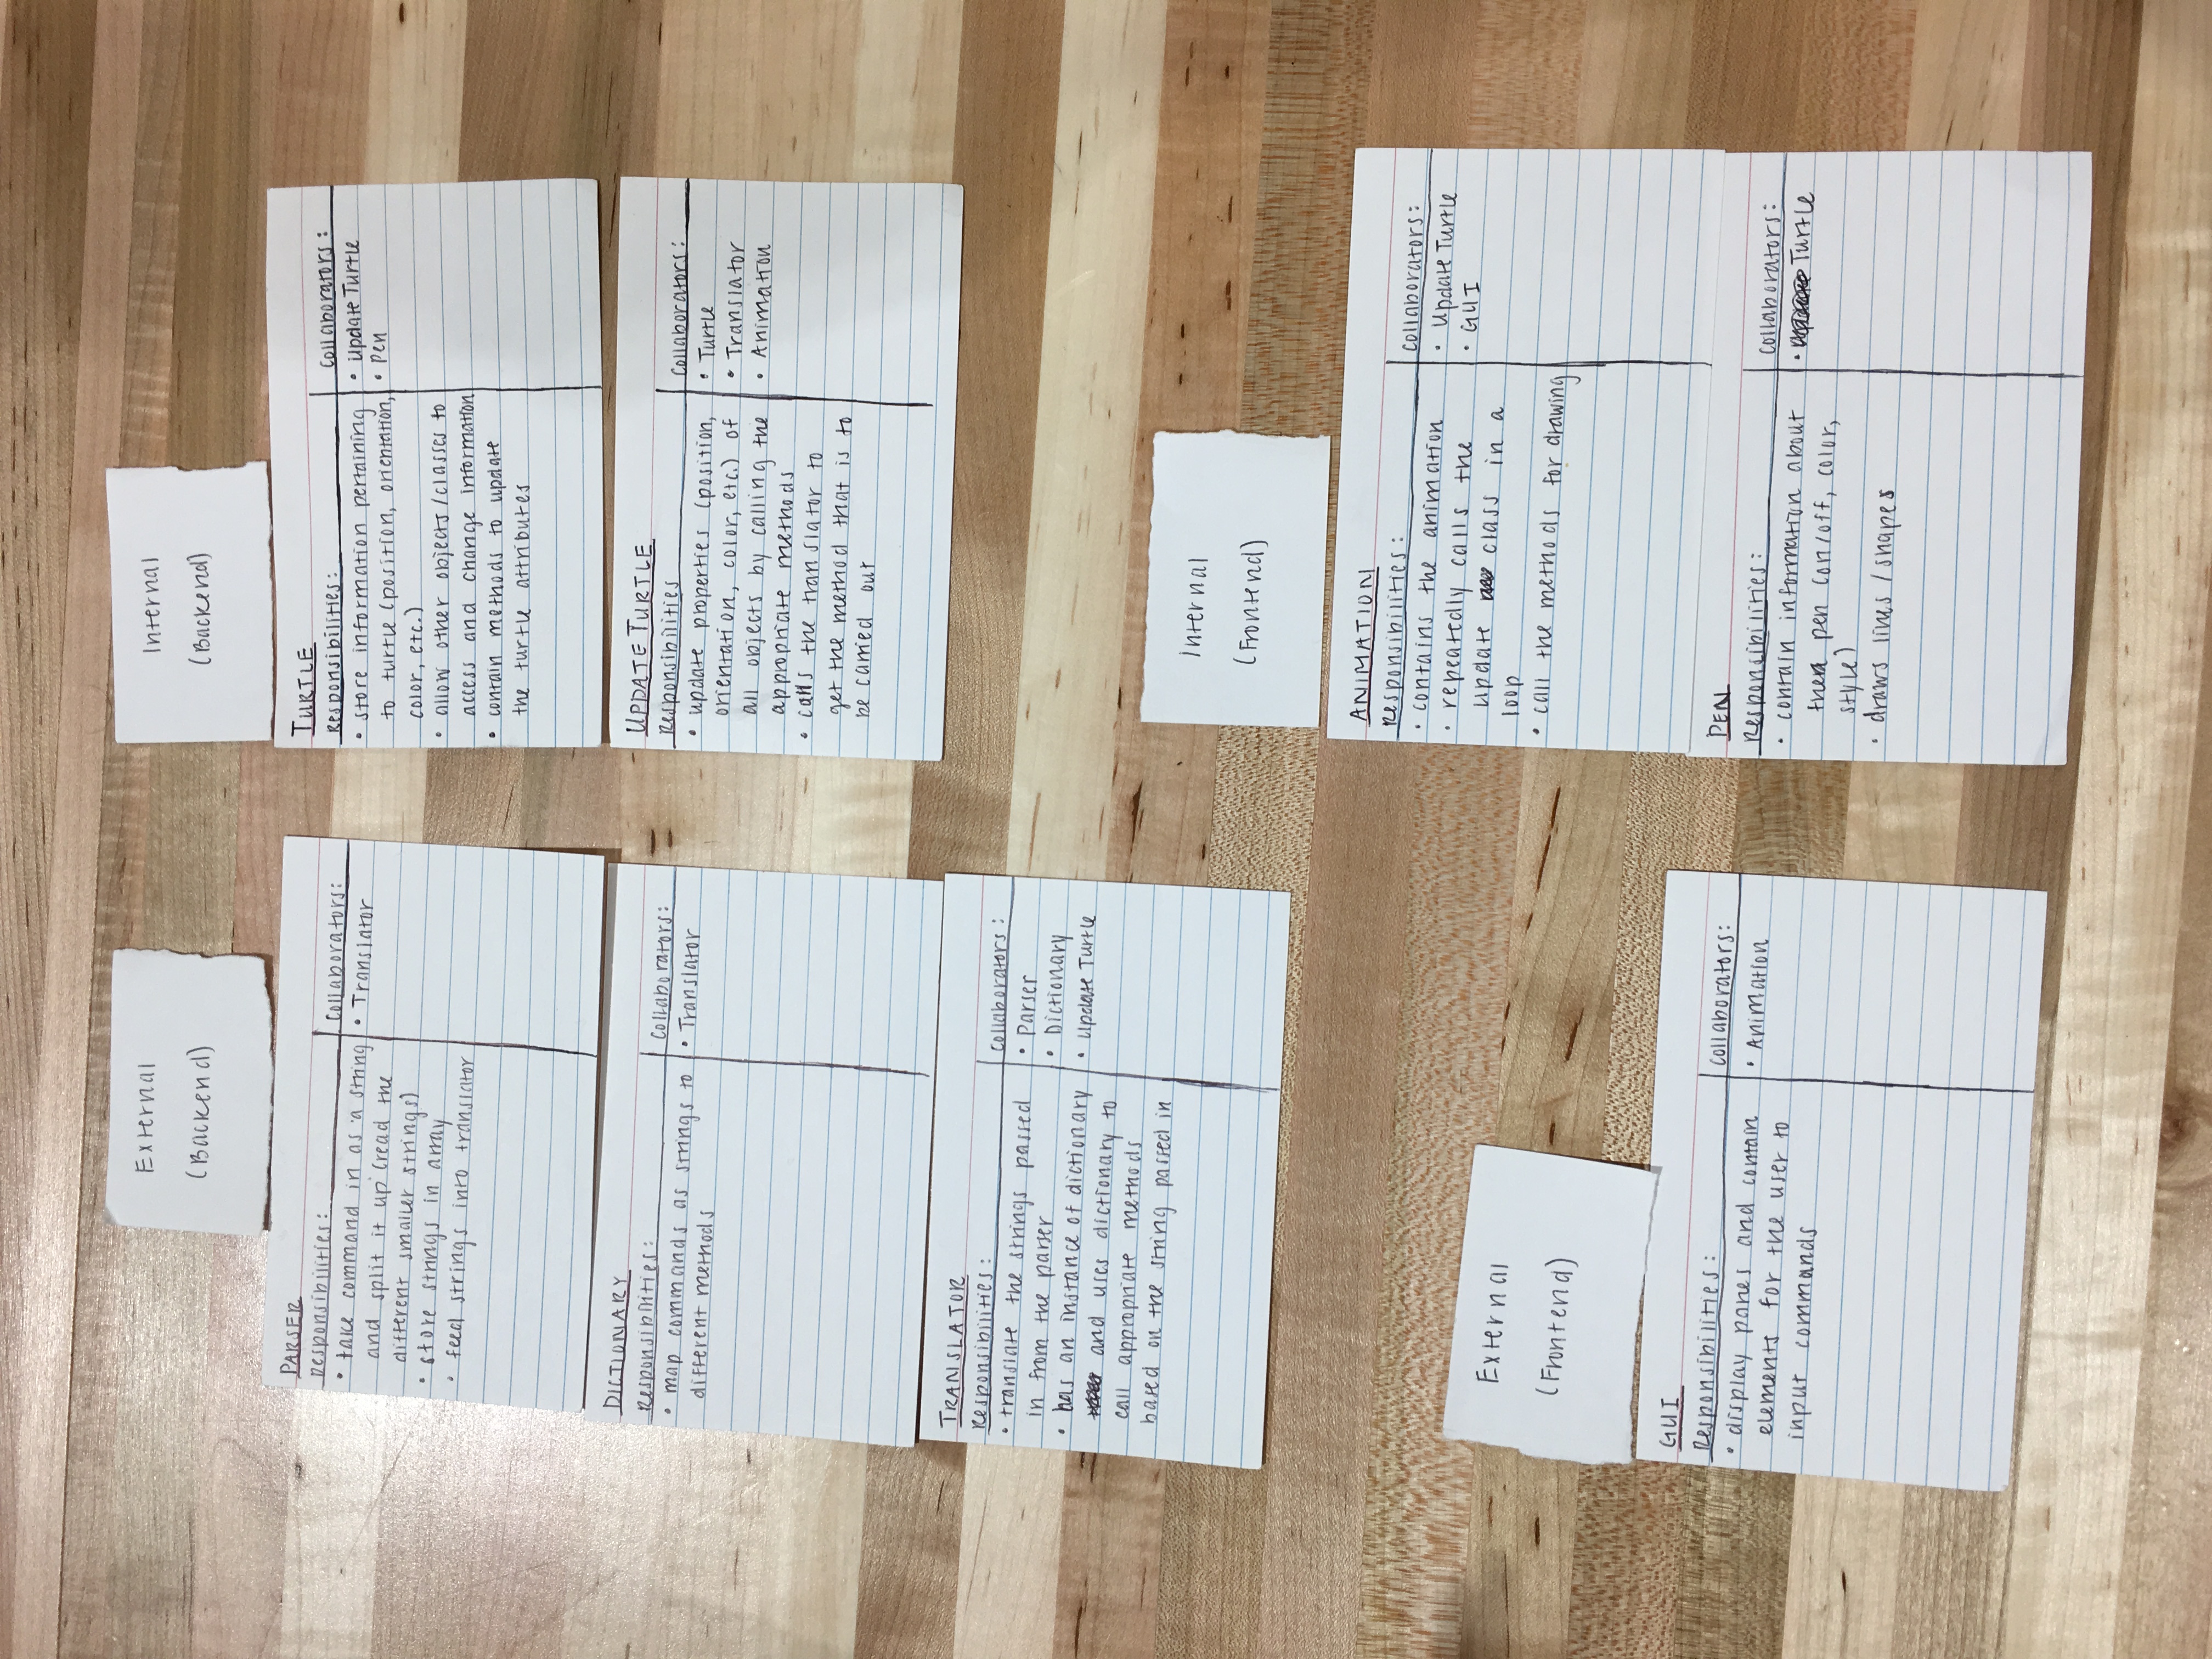 External
(Backend)
PARSER
Responsibilities:
• take command in as a string
and split it up (read the
different smaller strings)
• store strings in array
• feed strings into translator
Collaborators:
• Translator
DICTIONARY
Responsibilities:
• map commands as strings to
different methods
Collaborators:
• Translator
TRANSLATOR
Responsibilities:
• translate the strings passed
in from the parser
• has an instance of dictionary
and uses dictionary to
call appropriate methods
based on the string passed in
Collaborators:
• Parser
• Dictionary
• Update Turtle
Internal
(Backend)
TURTLE
Responsibilities:
• store information pertaining
to turtle (position, orientation,
color, etc.)
• allow other objects/classes to
access and change information
• contain methods to update
the turtle attributes
Collaborators:
• Update Turtle
• Pen
UPDATE TURTLE
Responsibilities
• update properties (position,
orientation, color, etc.) of
all objects by calling the
appropriate methods
• calls the translator to
get the method that is to
be carried out
Collaborators:
• Turtle
• Translator
• Animation
External
(Frontend)
GUI
Responsibilities:
• display panes and contain
elements for the user to
input commands
Collaborators:
• Animation
Internal
(Frontend)
ANIMATION
Responsibilities:
• contains the animation
• repeatedly calls the
update class in a
loop
• call the methods for drawing
Collaborators:
• Update Turtle
• GUI
PEN
Responsibilities:
• contain information about
pen (on/off, color,
style)
• draws lines / shapes
Collaborators:
• Turtle